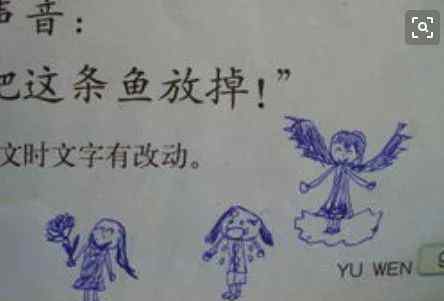 声音：
把这条鱼放掉！”
文时文字有改动。
YU WEN 9